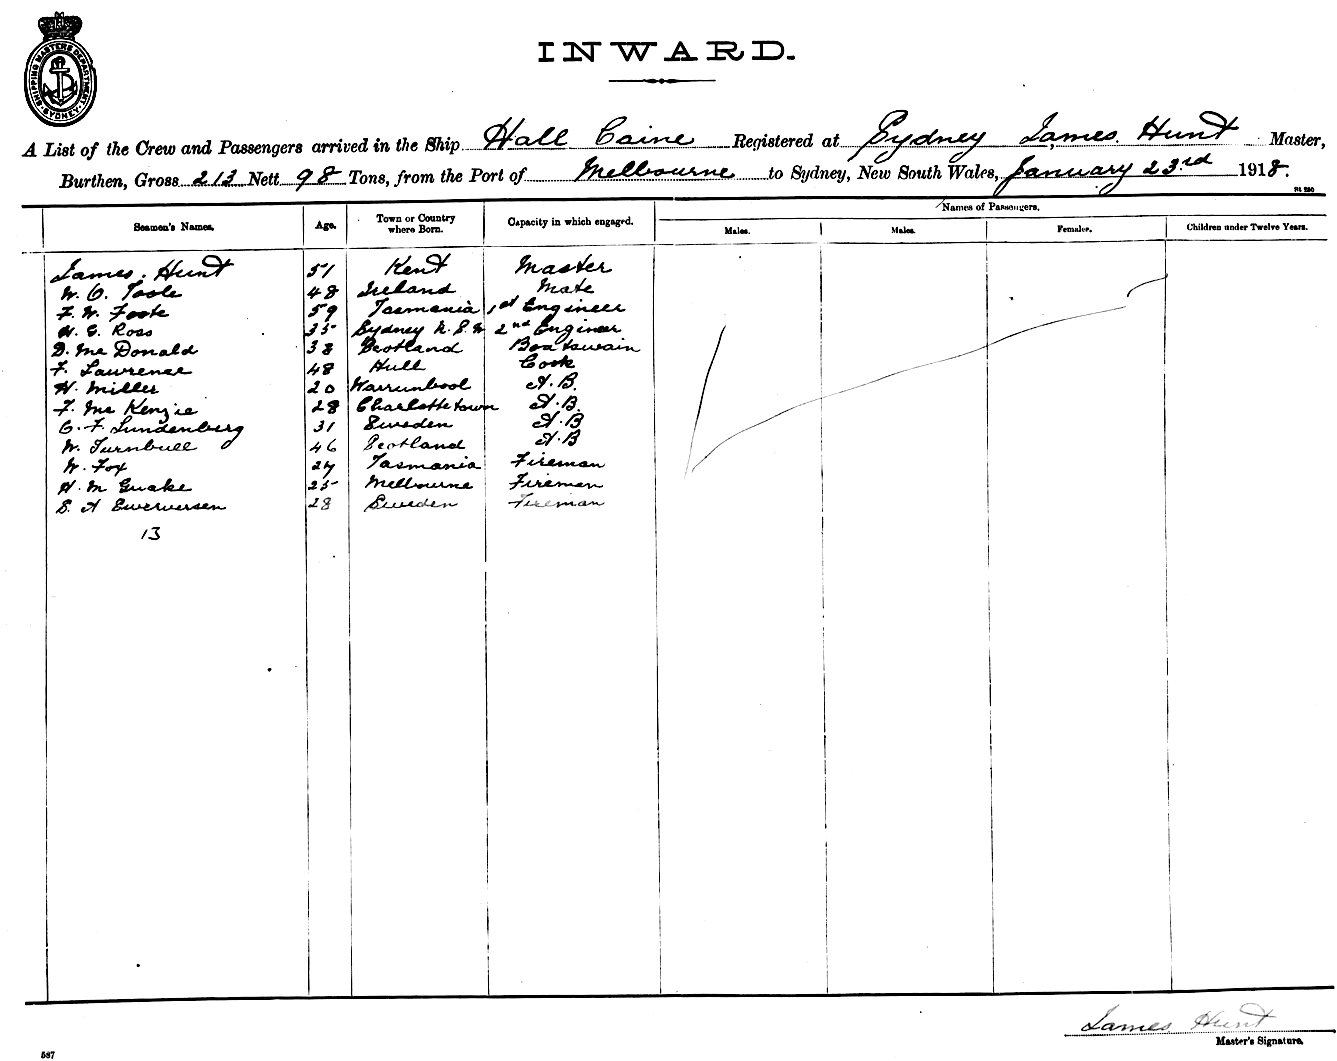 SHIPPING MASTERS DEPARTMENT SYDNEY
INWARD.
A List of the Crew and Passengers arrived in the Ship Hall Caine Registered at Sydney James Hunt Master,
Burthen, Gross 213 Nett 98 Tons, from the Port of Melbourne to Sydney, New South Wales, January 23rd 1918.
Names of Passengers.
Seamen's Names. Age. Town or Country where Born. Capacity in which engaged. Males. Males. Females. Children under Twelve Years.
James Hunt 51 Kent Master
W. O. Toole 48 Ireland Mate
F. W. Foote 59 Tasmania 1st Engineer
H. G. Ross 35 Sydney N.S.W 2nd Engineer
D. Mc Donald 38 Scotland Boatswain
F. Lawrence 48 Hull Cook
H. Miller 20 Warrunbool A.B.
F. Mc Kenzie 28 Charlottetown A.B.
C. F. Lundenberg 31 Sweden A.B
W. Turnbull 46 Scotland A.B
W. Fox 27 Tasmania Fireman
H. M Quake 25 Melbourne Fireman
S. A 28 Sweden Fireman
13
James Hunt
Master's Signature.
587